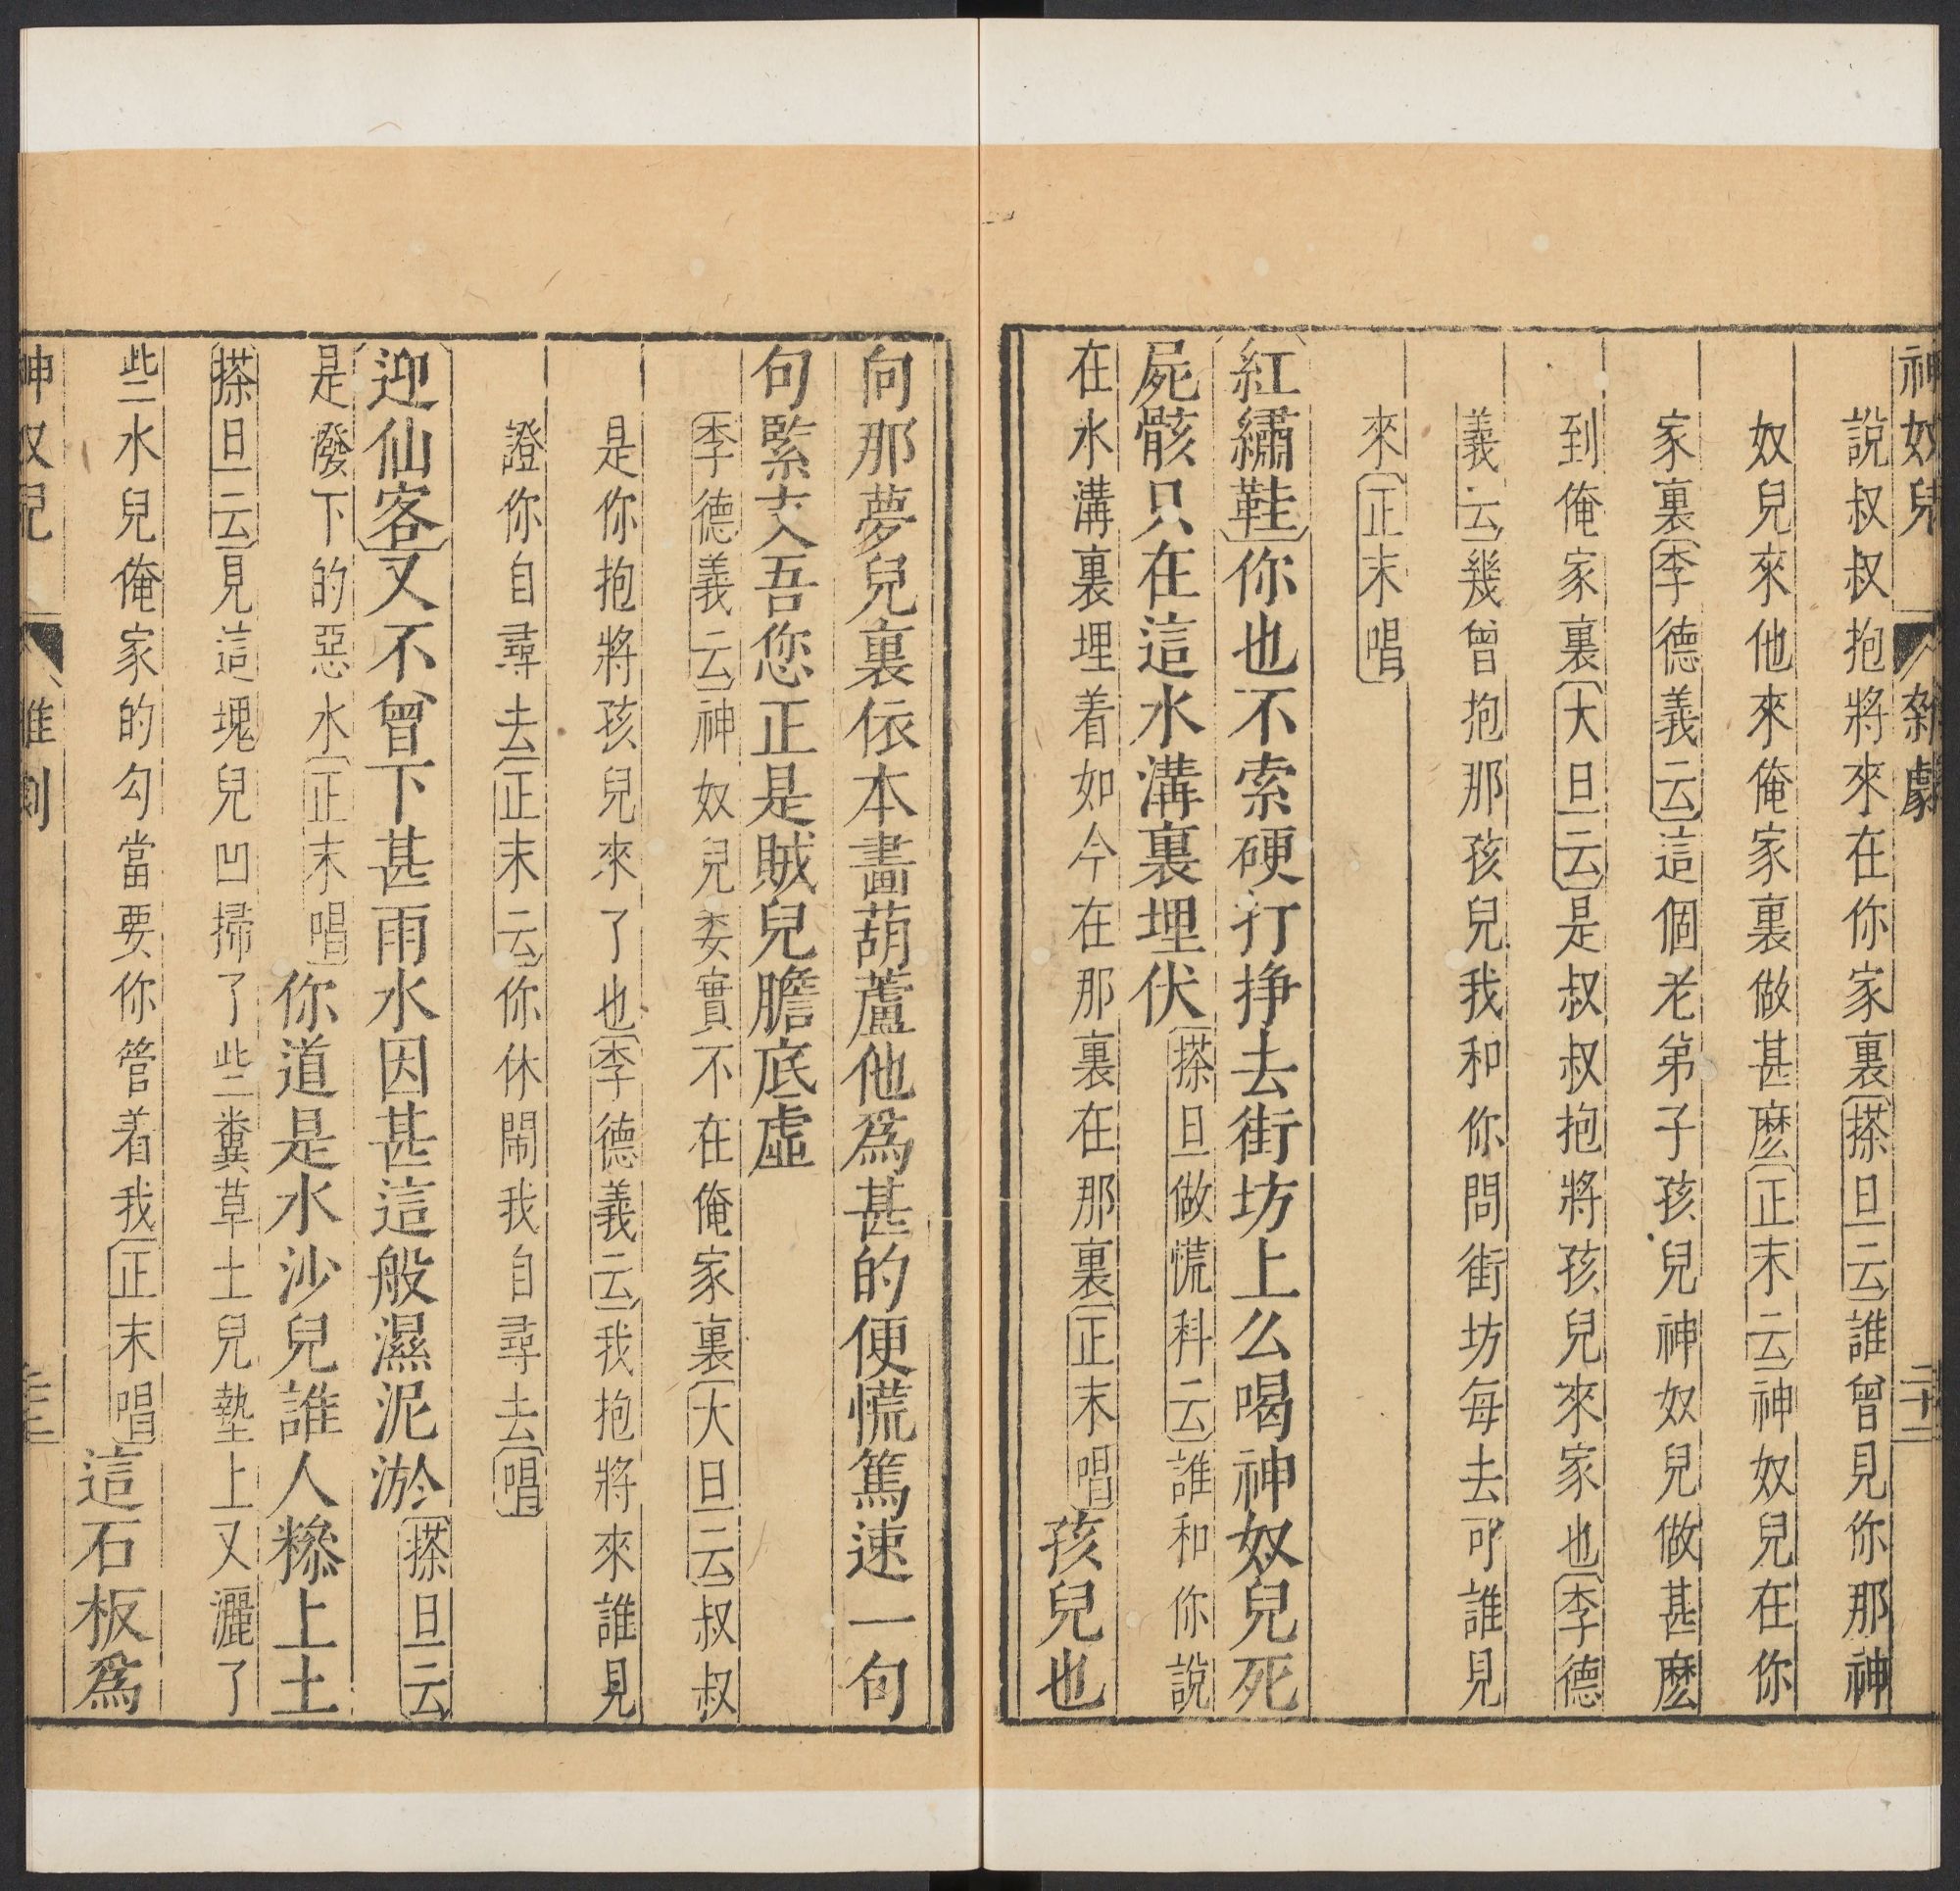 神奴兒 雜劇 二十二
說叔叔抱將來在你家裏〔搽旦云〕誰曾見你那神
奴兒來他來俺家裏做甚麽〔正末云〕神奴兒在你
家裏〔李德義云〕這個老弟子孩兒神奴兒做甚麽
到俺家裏〔大旦云〕是叔叔抱將孩兒來家也〔李德
義云〕幾曾抱那孩兒我和你問街坊每去可誰見
來〔正末唱〕
〔紅繡鞋〕你也不索硬打掙去街坊上么喝神奴兒死
屍骸只在這水溝裏埋伏〔搽旦做慌科云〕誰和你說
在水溝裏埋着如今在那裏在那裏〔正末唱〕孩兒也
向那夢兒裏依本畫葫蘆他爲甚的便慌篤速一句
句緊支吾您正是賊兒膽底虛
〔李德義云〕神奴兒委實不在俺家裏〔大旦云〕叔叔
是你抱將孩兒來了也〔李德義云〕我抱將來誰見
證你自尋去〔正末云〕你休鬧我自尋去〔唱〕
〔迎仙客〕又不曾下甚雨水因甚這般濕泥淤〔搽旦云〕
是廢下的惡水〔正末唱〕你道是水沙兒誰人糝上土
〔搽旦云〕見這塊兒凹掃了些糞草土兒墊上又灑了
些水兒俺家的勾當要你管着我〔正末唱〕這石板爲
神奴兒 雜劇